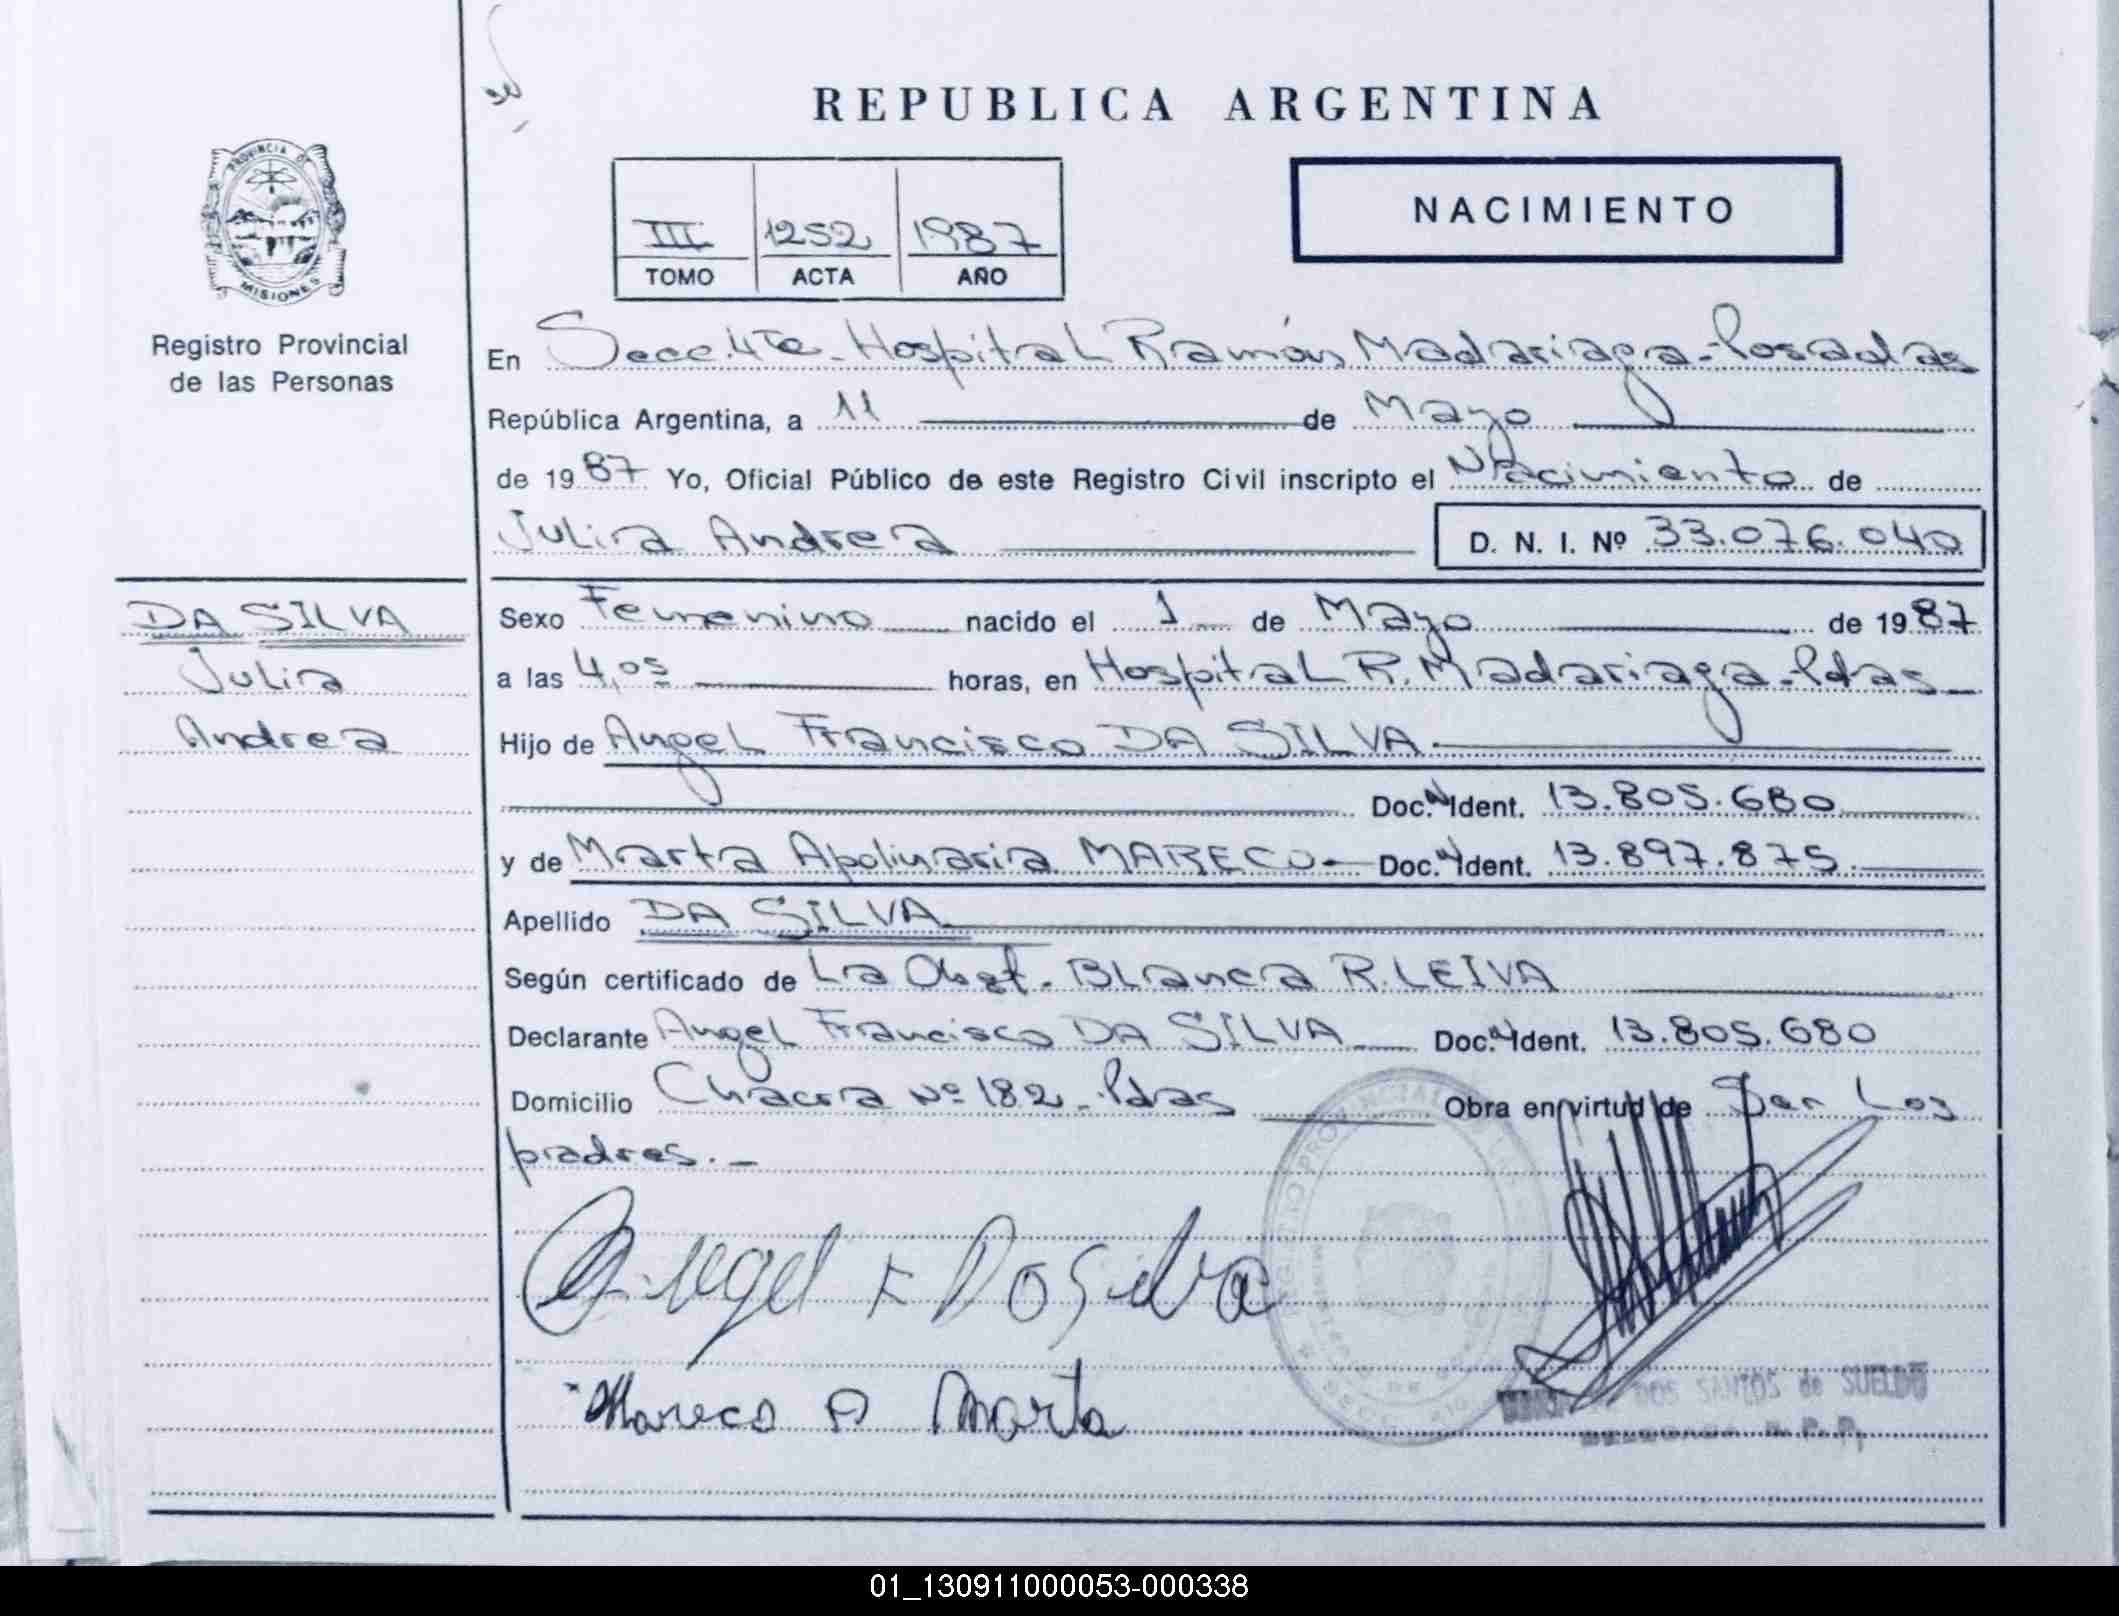 REPUBLICA ARGENTINA
PROVINCIA DE
MISIONES
Registro Provincial
de las Personas
III 1252 1987
TOMO ACTA AÑO
NACIMIENTO
En Secc. 4ta - Hospital Ramón Madariaga - Posadas
República Argentina, a 11 de Mayo
de 1987 Yo, Oficial Público de este Registro Civil inscripto el Nacimiento de
Julia Andrea D. N. I. Nº 33.076.040
DA SILVA
Julia
Andrea
Sexo Femenino nacido el 1 de Mayo de 1987
a las 4,05 horas, en Hospital R. Madariaga - Pdas
Hijo de Angel Francisco DA SILVA
Doc. N Ident. 13.805.680
y de Marta Apolinaria MARECO - Doc. N Ident. 13.897.875
Apellido DA SILVA
Según certificado de La Obst. Blanca R. LEIVA
Declarante Angel Francisco DA SILVA Doc. N Ident. 13.805.680
Domicilio Chacra Nº 182 - Pdas Obra en virtud de Ser Los
padres. -
REGISTRO PROVINCIAL
Angel F Da Silva
DOS SANTOS de SUELDO
Mareco A Marta
01_130911000053-000338